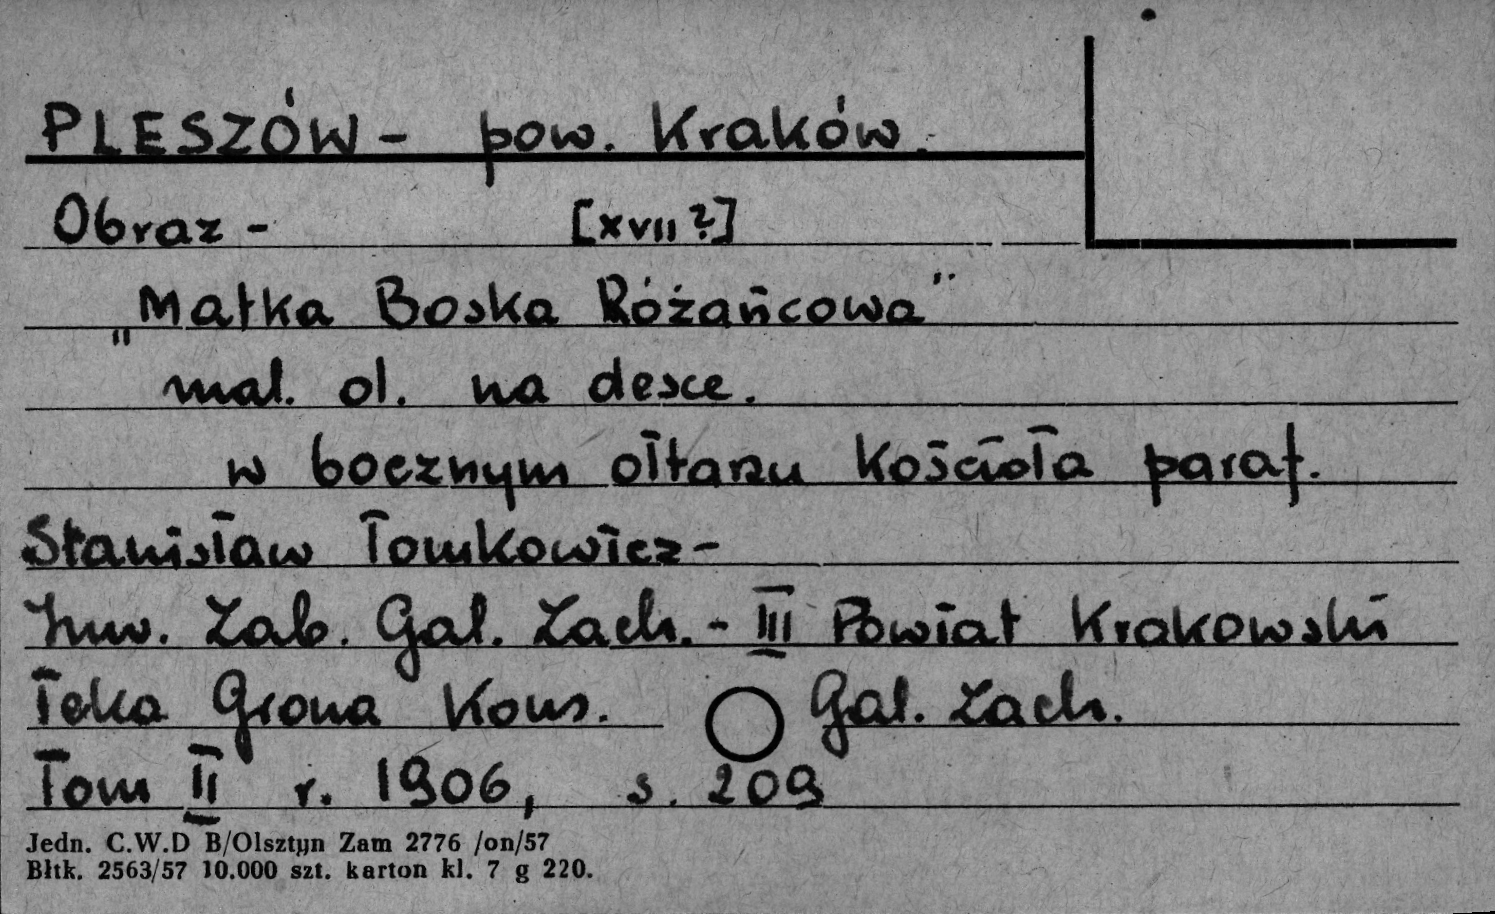 PLESZÓW - pow. Kraków.
Obraz - [XVII?]
„Matka Boska Różańcowa"
mal. ol. na desce.
w bocznym ołtarzu Kościoła paraf.
Stanisław Tomkowicz -
Inw. Zab. Gal. Zach. - III Powiat Krakowski
Teka Grona Kons. Gal. Zach.
Tom II r. 1906, s. 209
Jedn. C.W.D B/Olsztyn Zam 2776 /on/57
Błtk. 2563/57 10.000 szt. karton kl. 7 g 220.